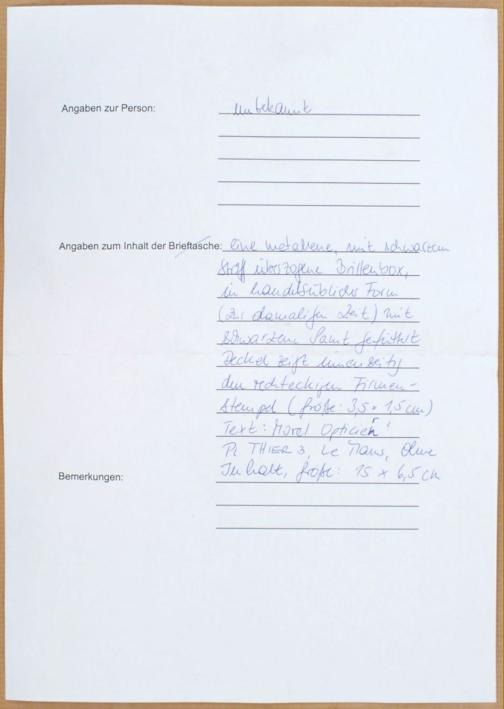 Angaben zur Person: unbekannt
Angaben zum Inhalt der Brieftasche: eine metallene, mit schwarzem
Stoff überzogene Brillenbox,
in handelsüblicher Form
(zur damaligen Zeit) mit
schwarzem Samt gefüttert
Deckel zeigt innenseitig
den rechteckigen Firmen-
stempel (Größe: 3,5 x 1,5 cm)
Text: "Morel Opticien"
Pl. THIERS, Le Mans, Ohne
Bemerkungen: Inhalt, Größe: 15 x 6,5 cm